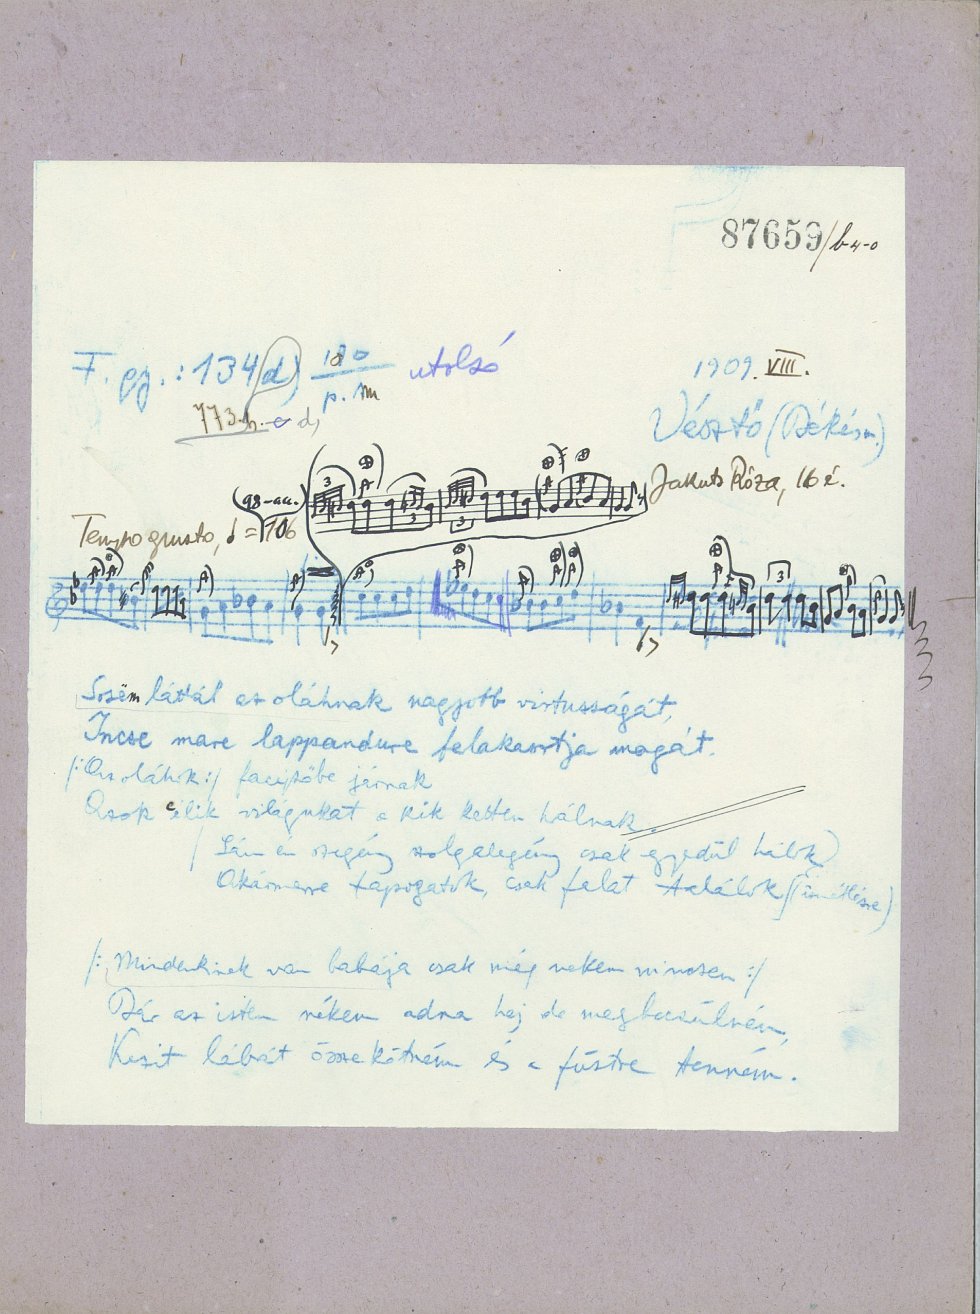 87659/b
F. gy.: 134(d) 120/p.m utolsó
1909. VIII.
773. d,
Vésztő (Békésm.)
Jakuts Róza, 16 é.
Tempo giusto, ♩ = 106
Sosëm láttál az oláhnak nagyobb virtusságát,
Incse mare lappandure felakasztja magát.
/: Az oláhok :/ facipőbe járnak
Azok élik világukat a kik ketten hálnak.
/ Lám én szegény szolgalegény csak egyedül hálok
Akármerre tapogatok, csak falat találok /(ismétlésre)
/: Mindenkinek van babája csak még nekem nincsen :/
Bár az isten nékem adna hej de megbecsülném,
Kezit lábát összekötném és a füstre tenném.